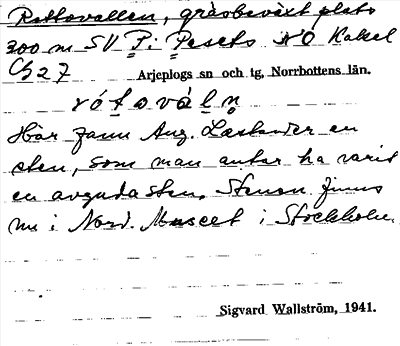 Rattovallen, gräsbevext plats
300 m SV P i Pesets NO Kakel
Cb27 Arjeplogs sn och tg, Norrbottens län.
rátová̀ln̥
Här fann Aug. Læstander en
sten, som man antar ha varit
en avgudasten. Stenen finns
nu i Nord. Museet i Stockholm.
Sigvard Wallström, 1941.